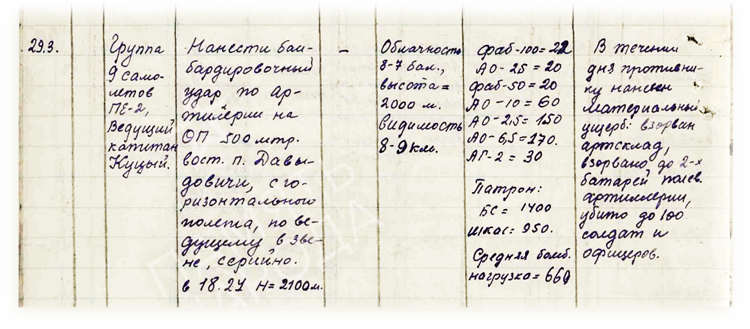 29.3.
Группа
9 само-
летов
ПЕ-2,
Ведущий
капитан
Куцый.
Нанести бом-
бардировочный
удар по ар-
тилерии на
ОП 500 мтр.
вост. п. Давы-
довичи, с го-
ризонтального
полета, по ве-
дущему в зве-
не, серийно.
в 18.27 Н=2100м.
–
Облачность
8-7 бал.,
высота=
2000 м.
Видимость
8-9 км.
Фаб-100=22
АО-25=20
Фаб-50=20
АО-10=60
АО-2,5=150
АО-6,5=170.
АГ-2=30
Патрон:
БС=1400
Шкас=950.
Средняя бомб.
нагрузка=669
В течении
дня противни-
ку нанесен
материальный
ущерб: взорван
артсклад,
взорвано до 2-х
батарей полев.
артиллерии,
убито до 100
солдат и
офицеров.